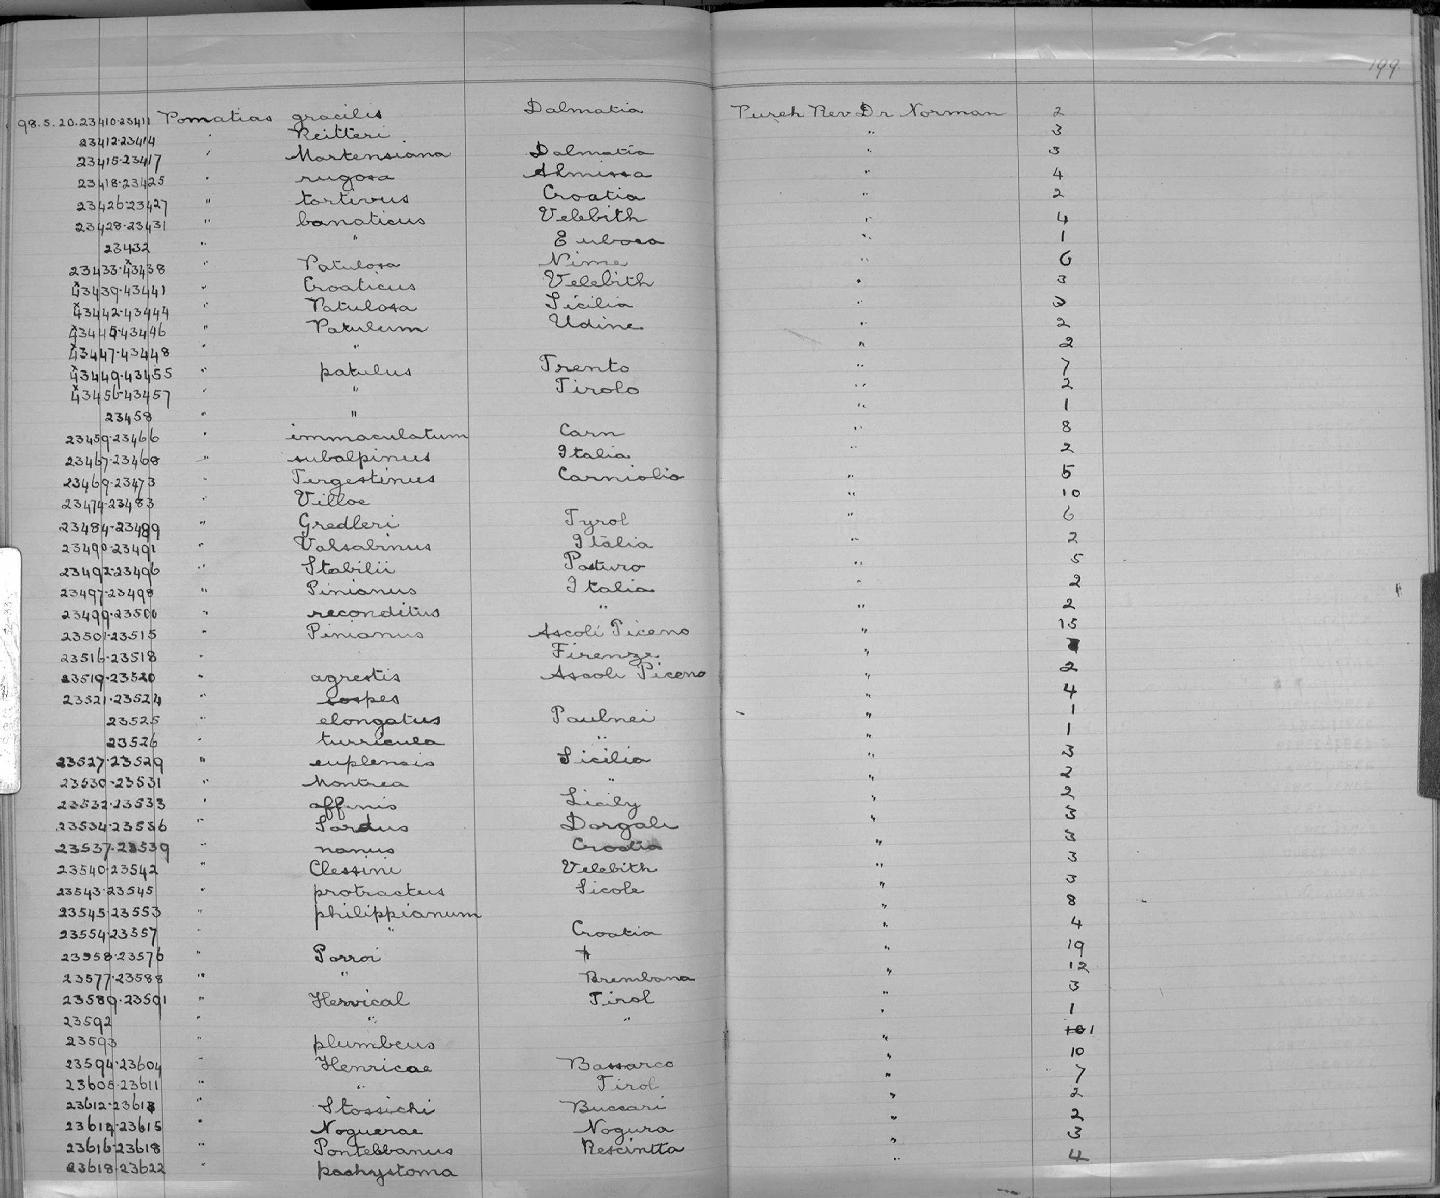 199
98.5.20.23410-23411 Pomatias gracilis Dalmatia Purch Rev Dr Norman 2
23412-23414 " Reitteri " 3
23415-23417 " Martensiana Dalmatia " 3
23418-23425 " rugosa Almissa " 4
23426-23427 " tortivus Croatia " 2
23428-23431 " banaticus Velebith " 4
23432 " " Euboea " 1
23433-43438 " Patulosa Nime " 6
43439-43441 " Croaticus Velebith " 3
43442-43444 " Patulosa Sicilia " 3
43445-43446 " Patulum Udine " 2
43447-43448 " " " 2
43449-43455 " patulus Trento " 7
43456-43457 " " Tirolo " 2
23458 " " " 1
23459-23466 " immaculatum Carn " 8
23467-23468 " subalpinus Italia " 2
23469-23473 " Tergestinus Carniolia " 5
23474-23483 " Villae " 10
23484-23489 " Gredleri Tyrol " 6
23490-23491 " Valsabinus Italia " 2
23492-23496 " Stabilii Pasturo " 5
23497-23498 " Pinianus Italia " 2
23499-23500 " reconditus " " 2
23501-23515 " Pinianus Ascoli Piceno " 15
23516-23518 Firenze "
23519-23520 " agrestis Ascoli Piceno " 2
23521-23524 " cospes " 4
23525 " elongatus Paulnei " 1
23526 " turricula " " 1
23527-23529 " euplensis Sicilia " 3
23530-23531 " Montrea " " 2
23532-23533 " affinis Sicily " 2
23534-23536 " Sardus Dorgali " 3
23537-23539 " nanus Croatia " 3
23540-23542 " Clessini Velebith " 3
23543-23545 " protractus Sicole " 3
23545-23553 " philippianum " 8
23554-23557 " " Croatia " 4
23558-23576 " Porroi " 19
23577-23588 " " Brembana " 12
23589-23591 " Hervical Tirol " 3
23592 " " " " 1
23593 plumbeus " 1
23594-23604 " Henricae Bassarco " 10
23605-23611 " " Tirol " 7
23612-23613 " Stossichi Buccari " 2
23614-23615 " Noguerae Nogura " 2
23616-23618 " Pontebbanus Rescintta " 3
23618-23622 " pachystoma " 4